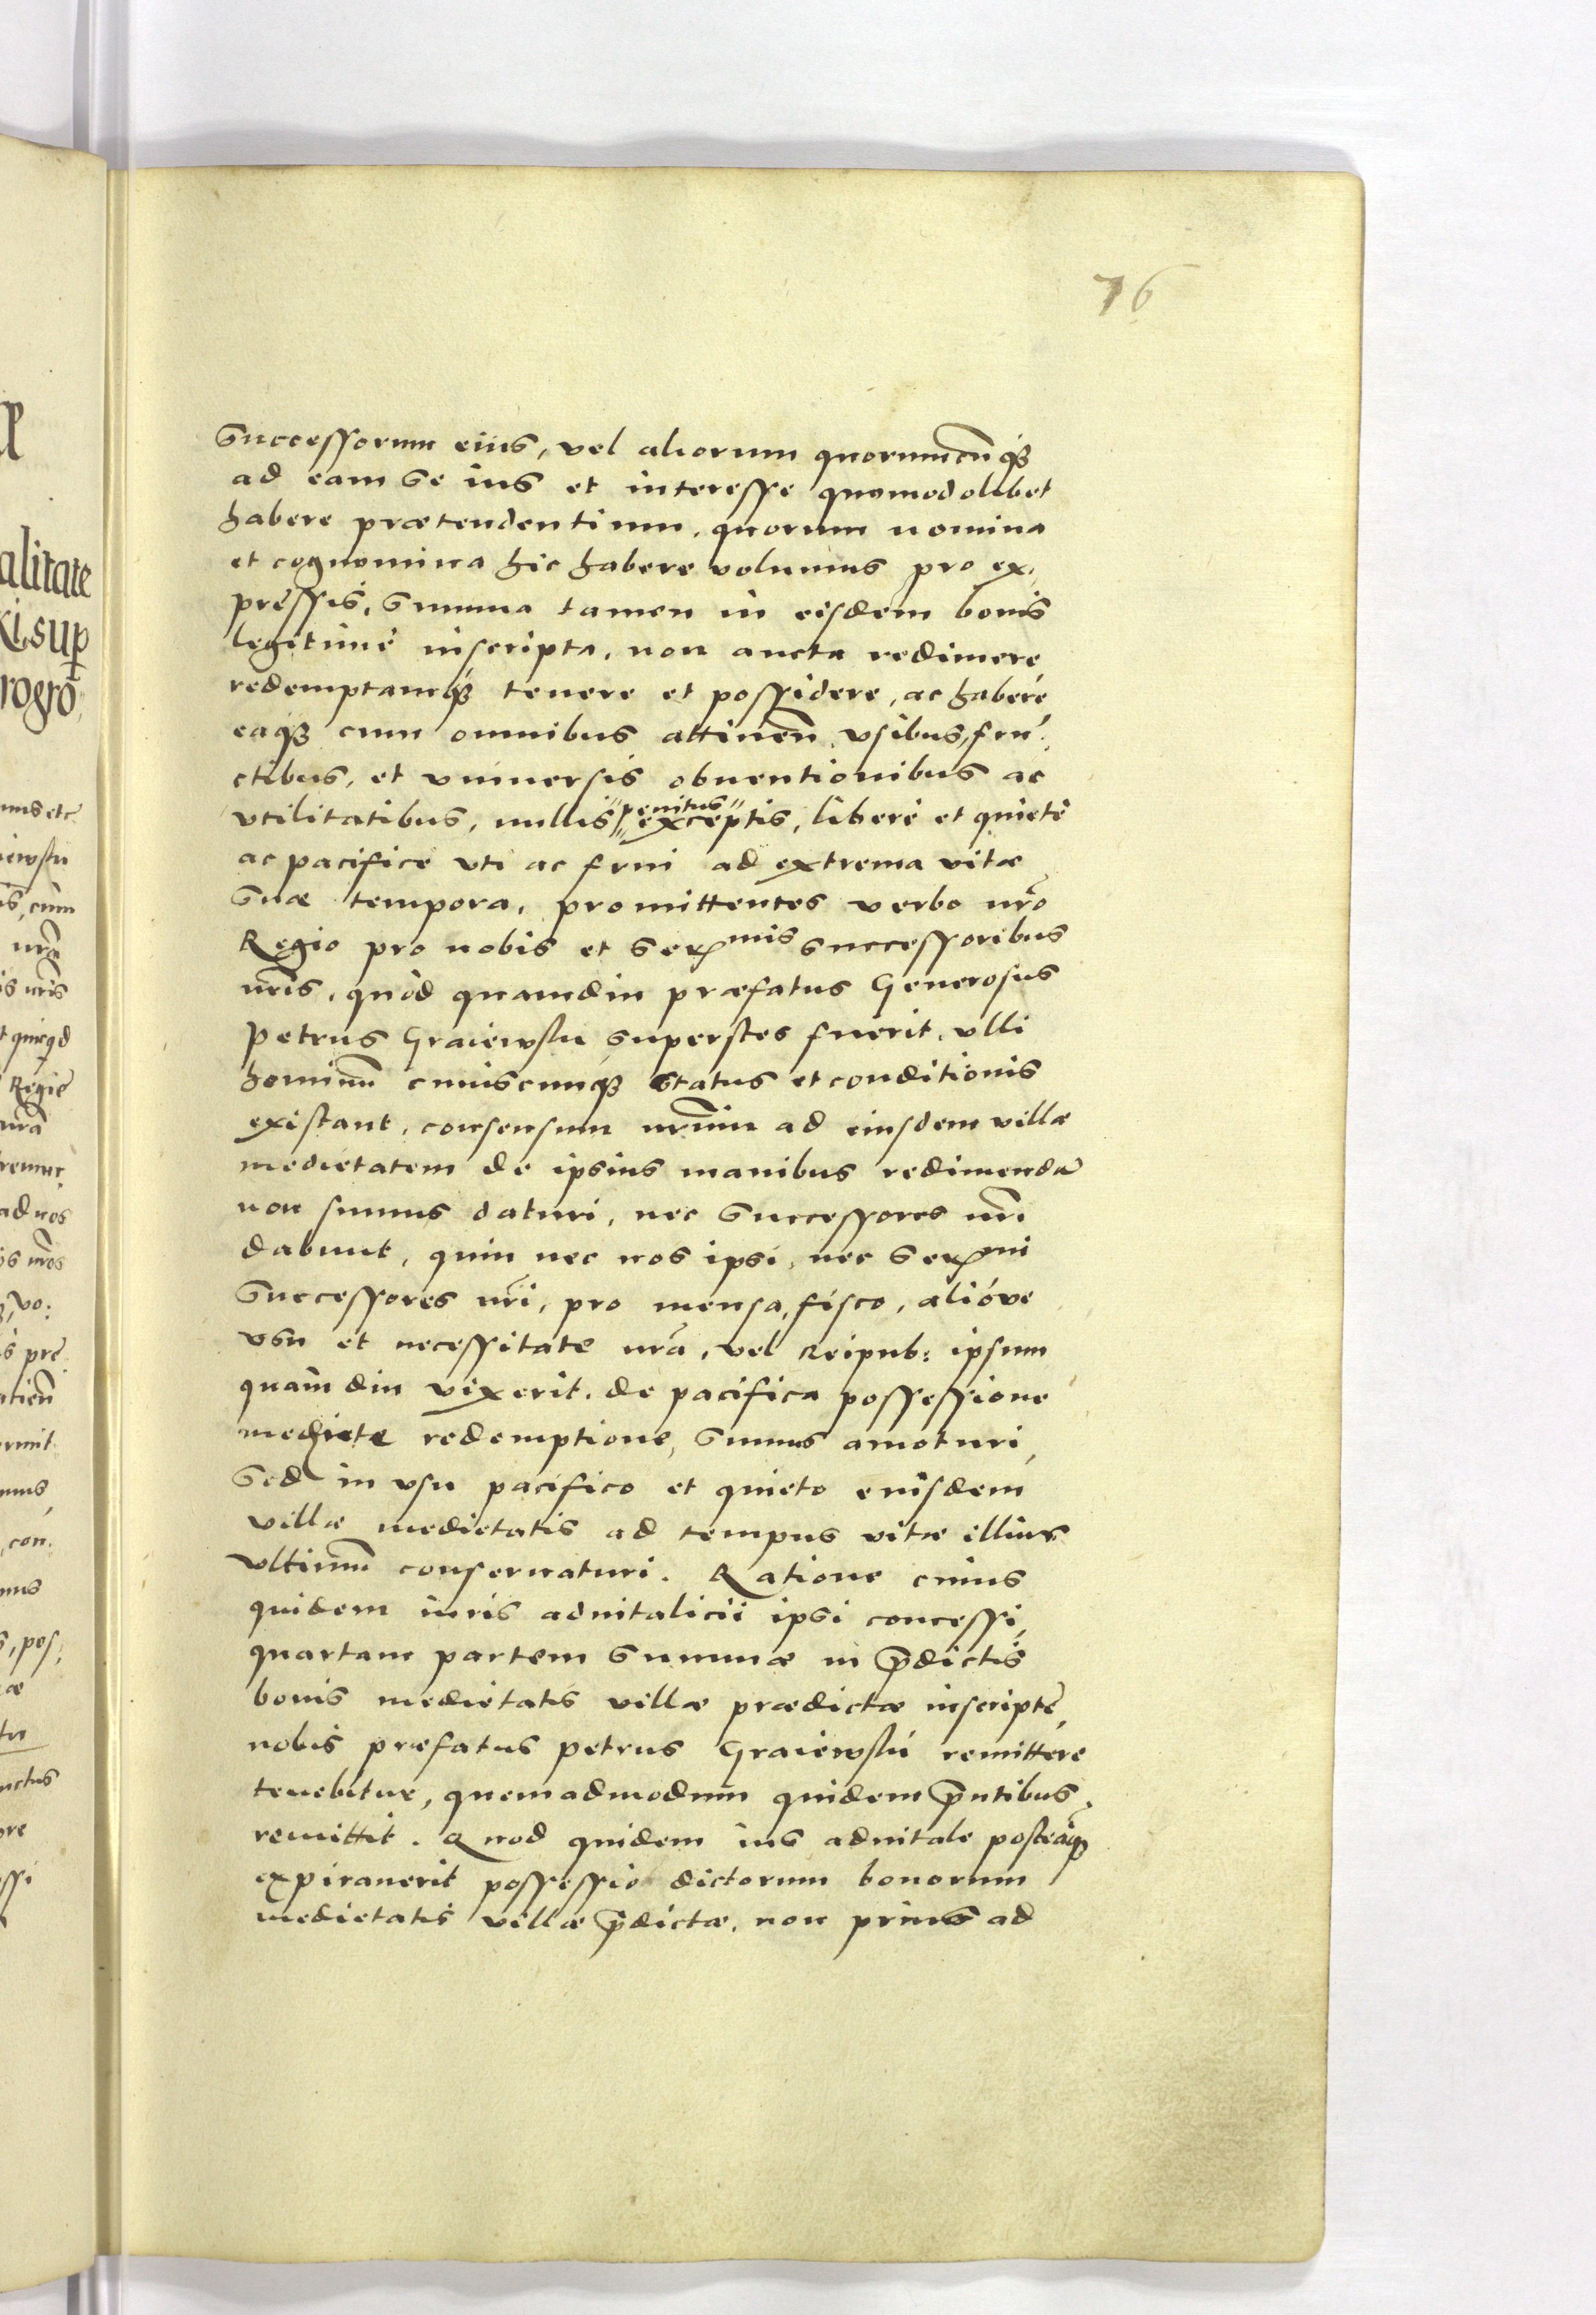 76
Successorum eius, vel aliorum quorumcunq3
ad eam se ius et interesse quomodolibet
habere prætendentium, quorum nomina
et cognomina hic habere volumus pro ex,
pressis, Summa tamen in eisdem bonis
legitime inscripta, non aucta redimere
redemptamq3 tenere et possidere, ac habere
eaq3 cum omnibus attinen̄. vsibus, fru,
ctibus, et vniuersis obuentionibus ac
vtilitatibus, nullis penitus exceptis, liberè et quietè
ac pacifice vti ac frui ad extrema vitæ
Suæ tempora, promittentes verbo nr̃o
Regio pro nobis et Ser^mis successoribus
nr̃is, quòd quamdiu præfatus Generosus
Petrus Graiewski superstes fuerit, vlli
hominū cuiuscunq3 status et conditionis
existant, consensum nr̃um ad eiusdem villæ
medietatem de ipsius manibus redimendā
non sumus daturi, nec Successores nr̃i
dabunt, quin nec nos ipsi, nec Ser^mi
Successores nr̃i, pro mensa, fisco, alióve
vsu et necessitate nr̃a, vel Reipub: ipsum
quàm diu vixerit, de pacifica possessione
redemptione, Sumus amoturi,
Sed in vsu pacifico et quieto euisdem
villæ medietatis ad tempus vitæ illius
vltimū conseruaturi. Ratione cuius
quidem iuris aduitalicii ipsi concessi,
quartam partem Summæ in p̃dictis
bonis medietatis villæ prædictæ inscriptę,
nobis præfatus Petrus Graiewski remittere
tenebitur, quemadmodum quidem p̃ntibus.
remittit. Quod quidem ius aduitale posteaq̃3
expirauerit possessio dictorum bonorum
medietatis villæ p̃dictæ, non prius ad